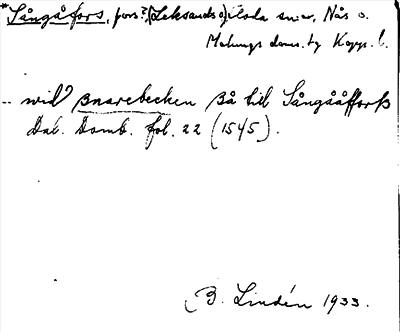 *Sångåfors, fors?, (Leksands o) Floda snr, Nås o.
Malungs doms. hg Kopp. l.
.. wid Snarebecken Så till Sångååfforß
Dal. Domb. fol. 22 (1545).
B. Lindén 1933.